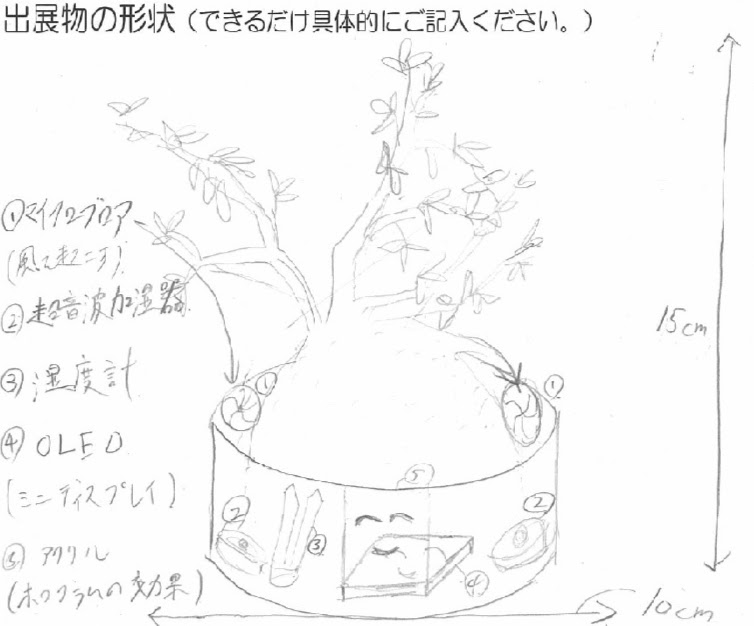 出展物の形状（できるだけ具体的にご記入ください。）
①マイクロブロアー
(風を起こす)
②超音波加湿器
③湿度計
④OLED
(ミニディスプレイ)
⑤アクリル
(ホログラムの効果)
①
①
15cm
⑤
②
③
②
④
10cm